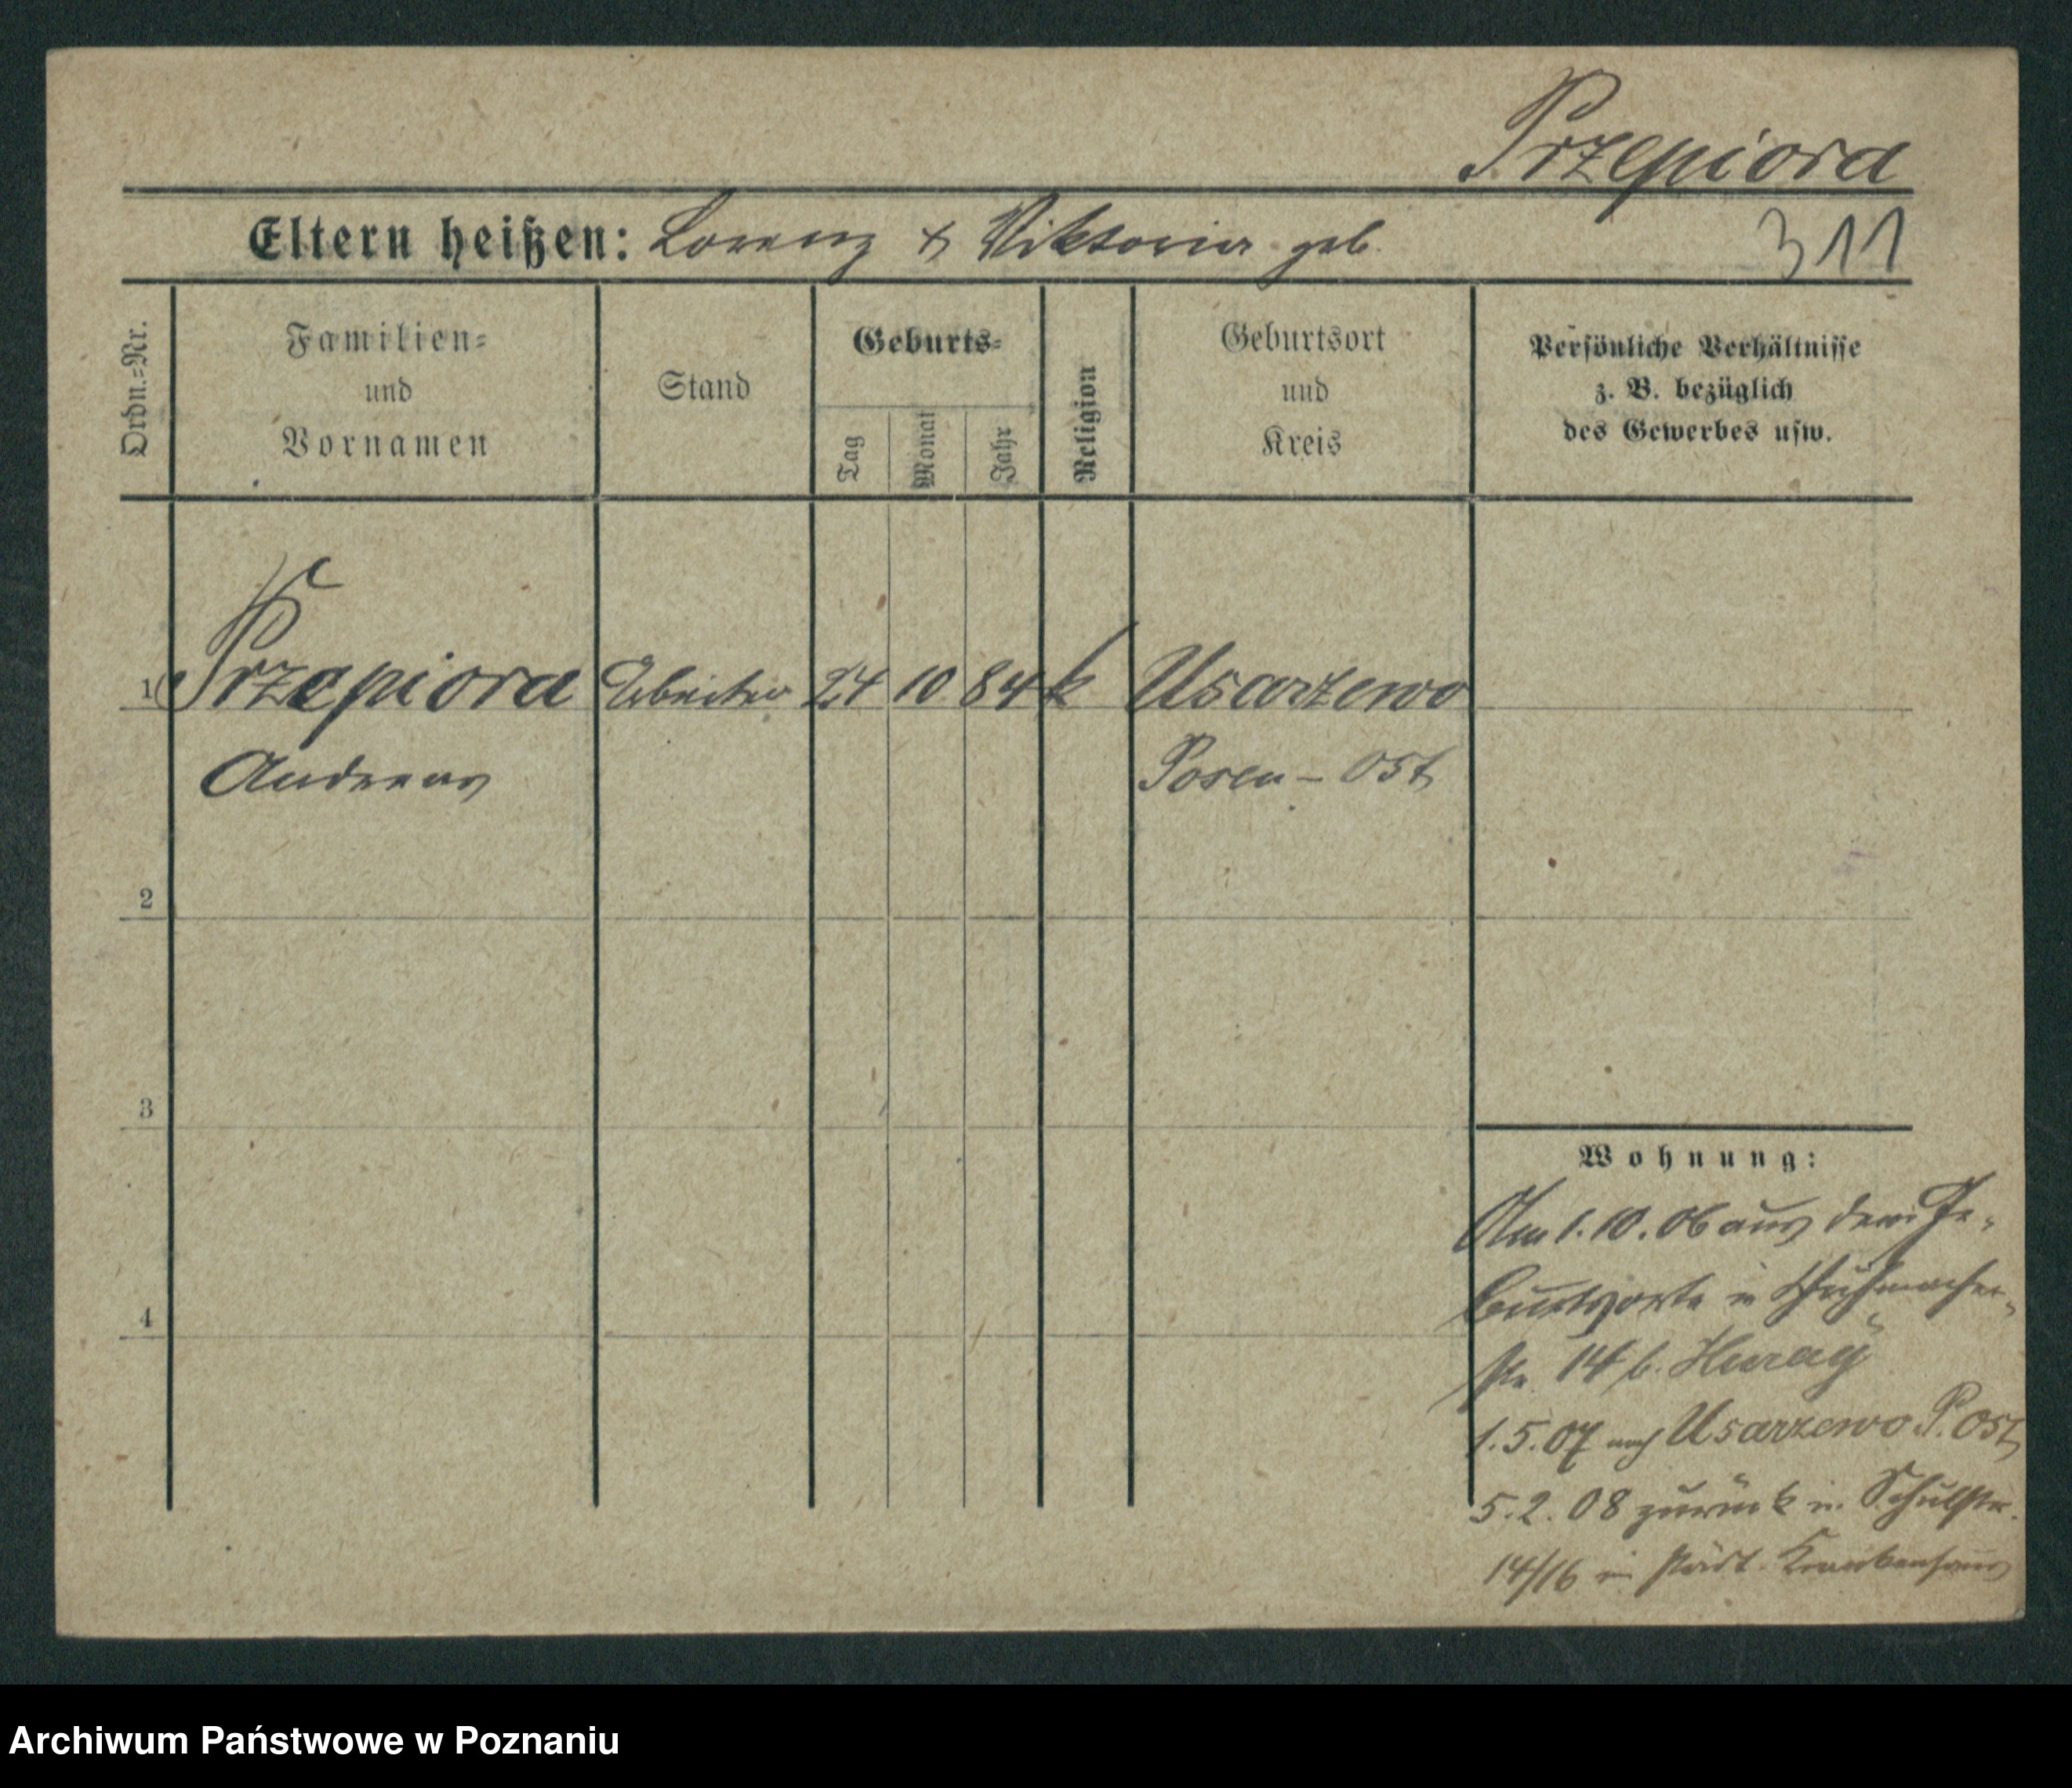 Przepiora
Eltern heißen: Lorenz & Viktoria geb.
311
Ordn.=Nr.
Familien=
und
Vornamen
Stand
Geburts=
Tag
Monat
Jahr
Religion
Geburtsort
und
Kreis
Persönliche Verhältnisse
z. B. bezüglich
des Gewerbes usw.
1 Przepiora Arbeiter 24 10 84 k Usarzewo
Andreas Posen - Ost
2
3
4
Wohnung:
Am 1.10.06 aus dem Ge-
burtsorte in Schuhmacher-
str. 14 b.
1.5.07 nach Usarzewo P. Ost
5.2.08 zurück in Schulstr.
14/16 in städt. Krankenhaus
Archiwum Państwowe w Poznaniu